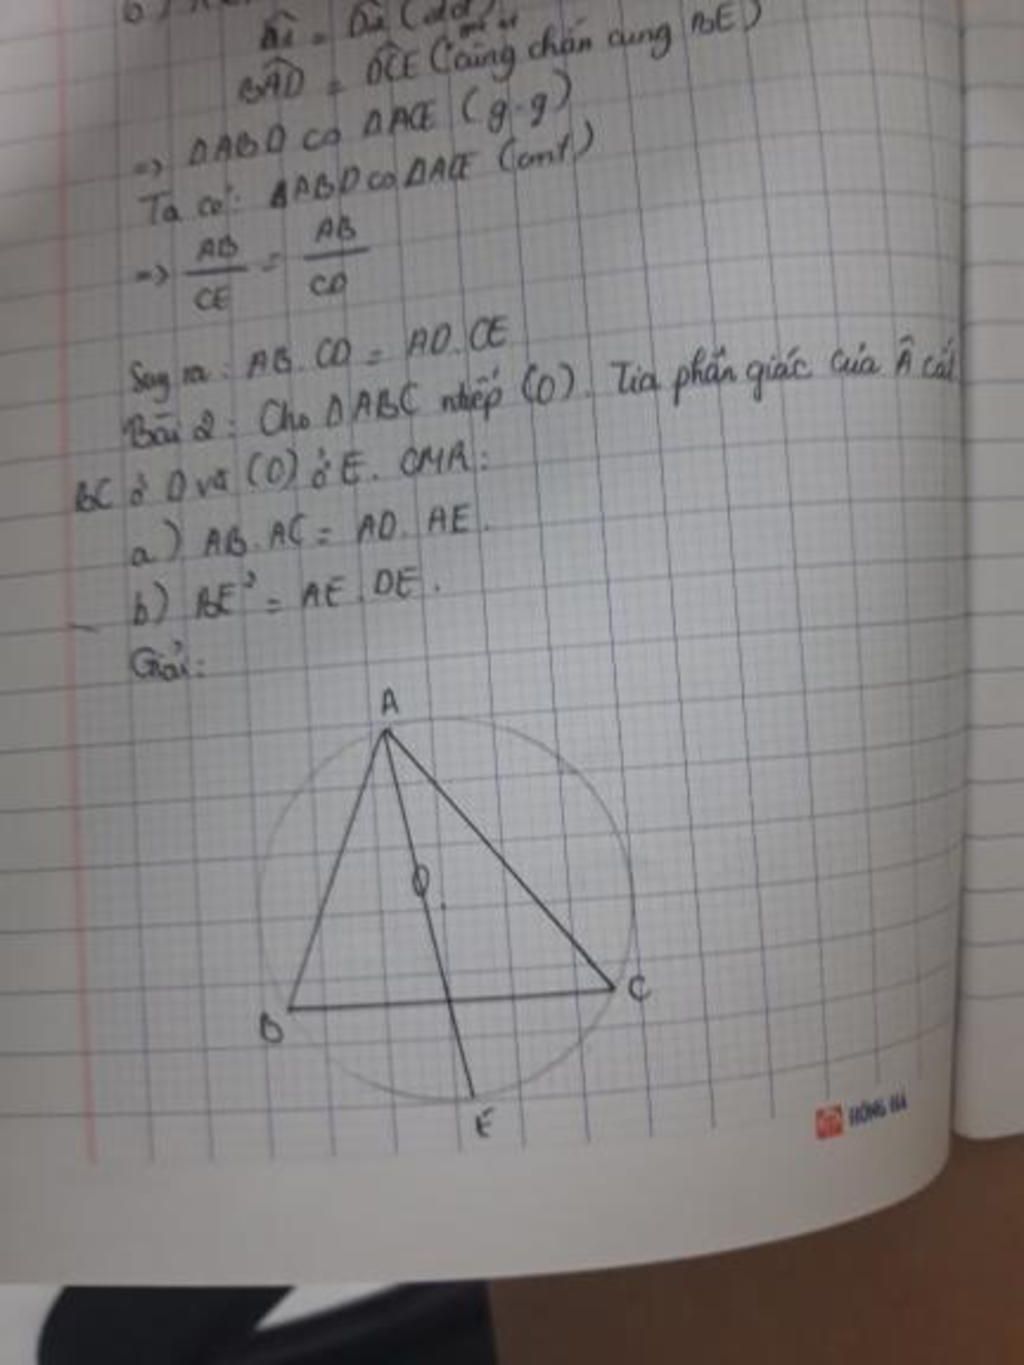 b)
D̂₁ = D̂₂ (đđ)
BÂD = DĈE (cùng chắn cung BE)
=> ΔABD ∽ ΔACE (g.g)
Ta có: ΔABD ∽ ΔACE (cmt)
=> AB/CE = AB/CD
Suy ra: AB.CD = AD.CE
Bài 2: Cho ΔABC ntiếp (O). Tia phân giác của Â cắt
BC ở D và (O) ở E. CMR:
a) AB.AC = AD.AE.
b) BE² = AE.DE.
Giải:
A
O
B
C
E
HỒNG HÀ